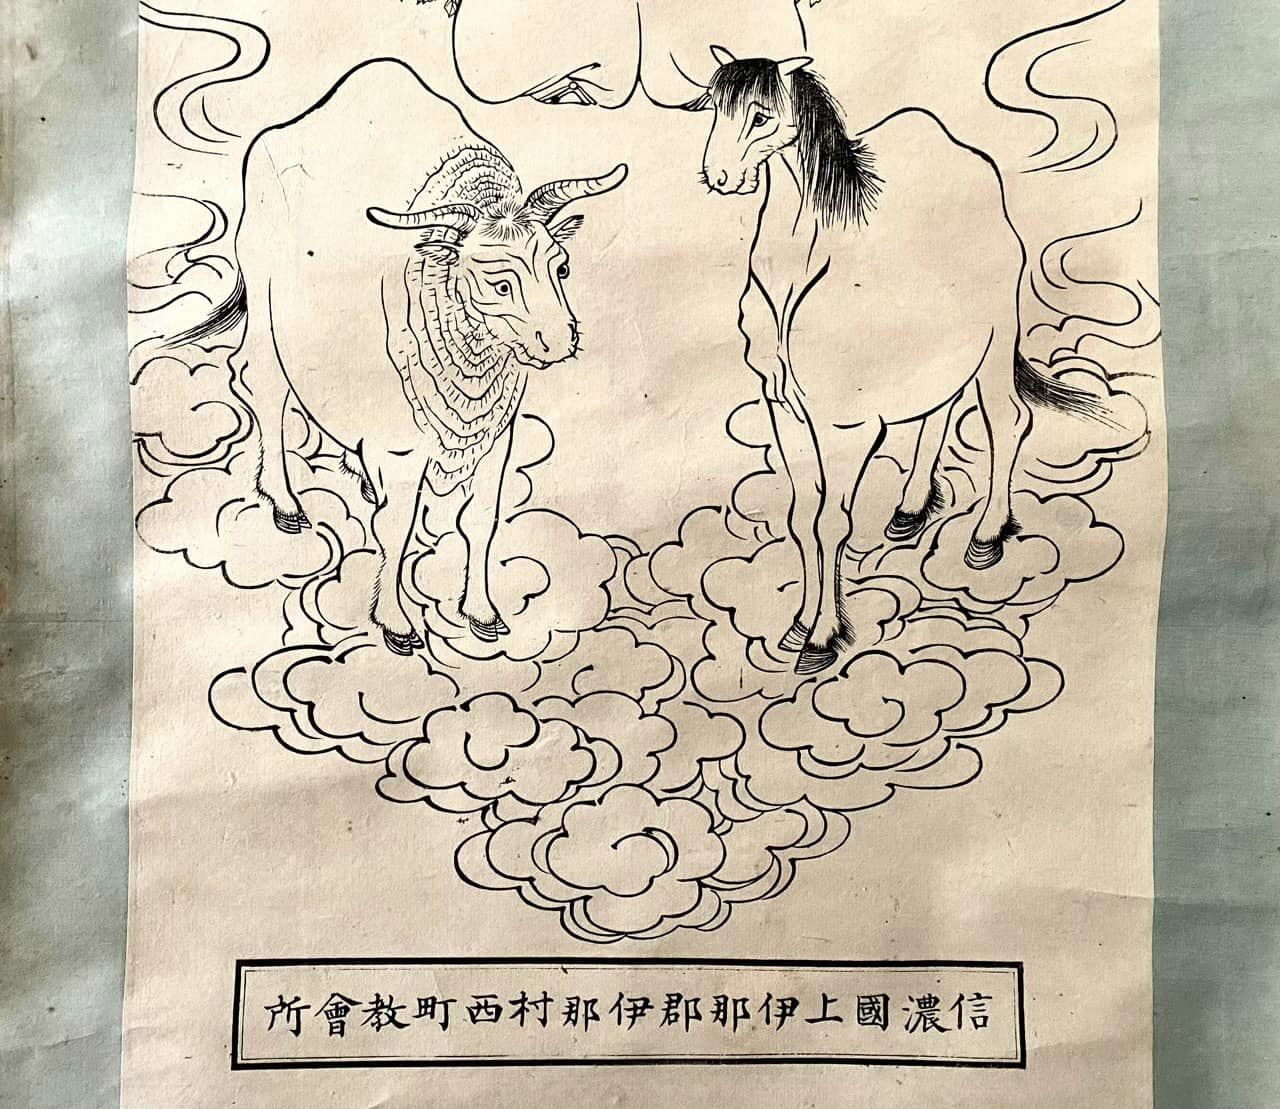 信濃國上伊那郡伊那村西町教會所